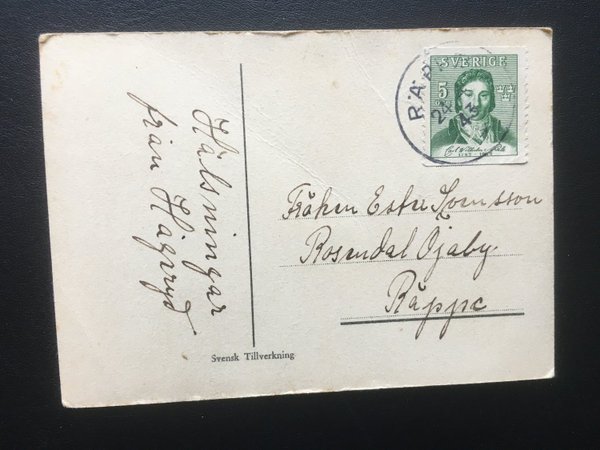 Hälsningar
från Hägeryd
SVERIGE
5
RÄP
24
43
Fröken Ester Jonsson
Rosendal Öjaby
Räppe
Svensk Tillverkning